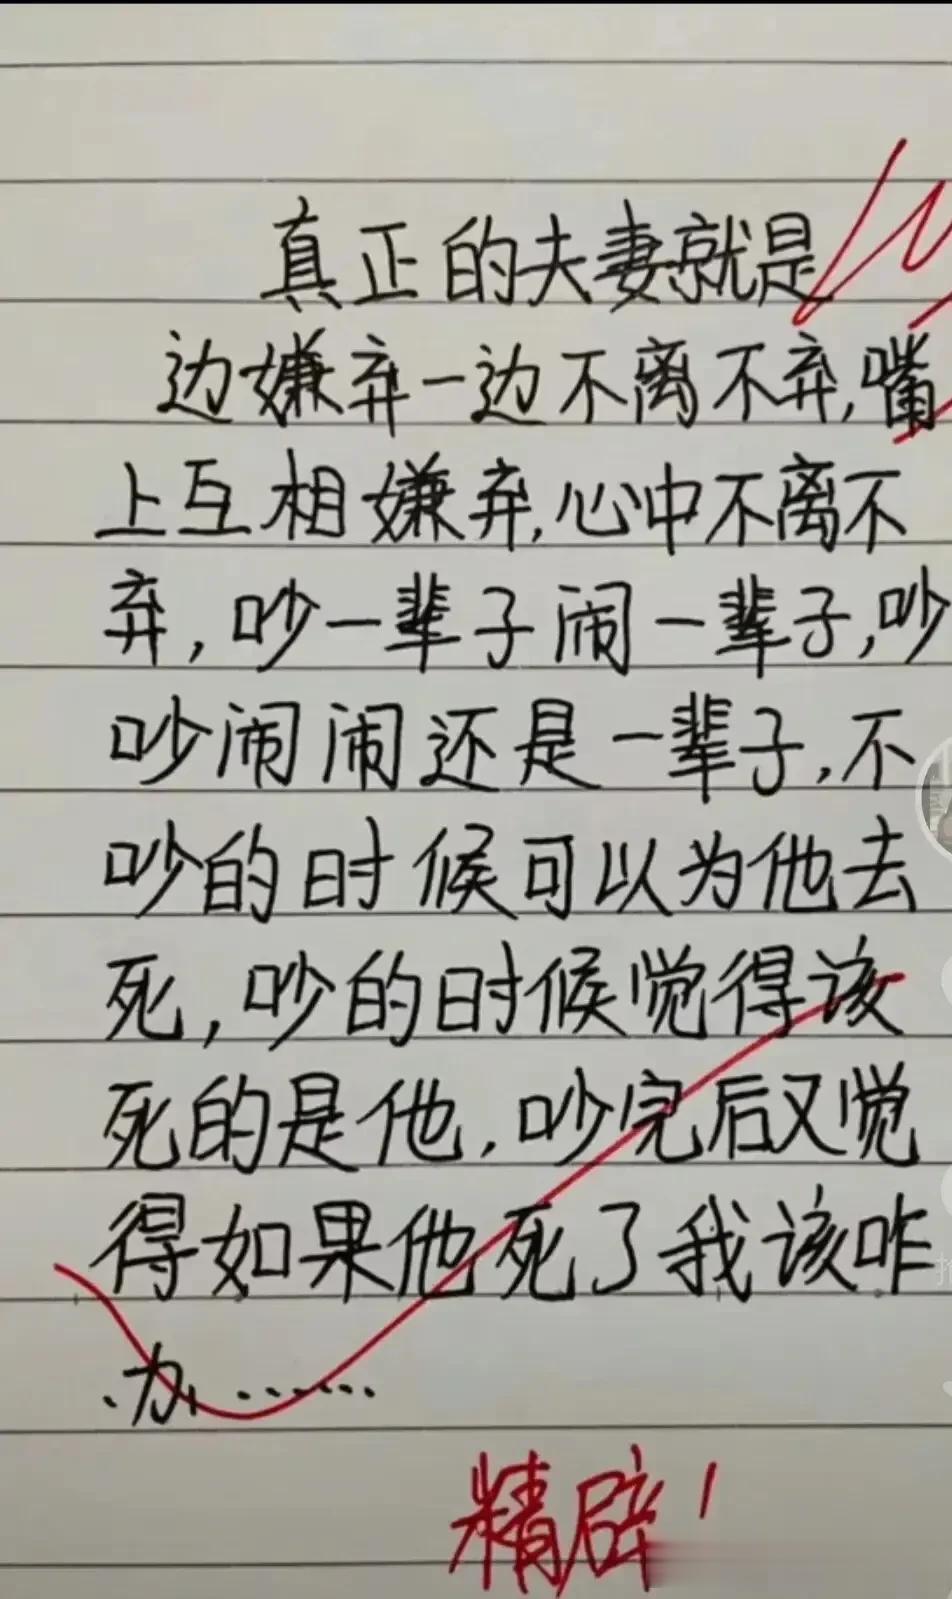 真正的夫妻就是
边嫌弃一边不离不弃,嘴
上互相嫌弃,心中不离不
弃,吵一辈子闹一辈子,吵
吵闹闹还是一辈子,不
吵的时候可以为他去
死,吵的时候觉得该
死的是他,吵完后又觉
得如果他死了我该咋
办......
精辟!